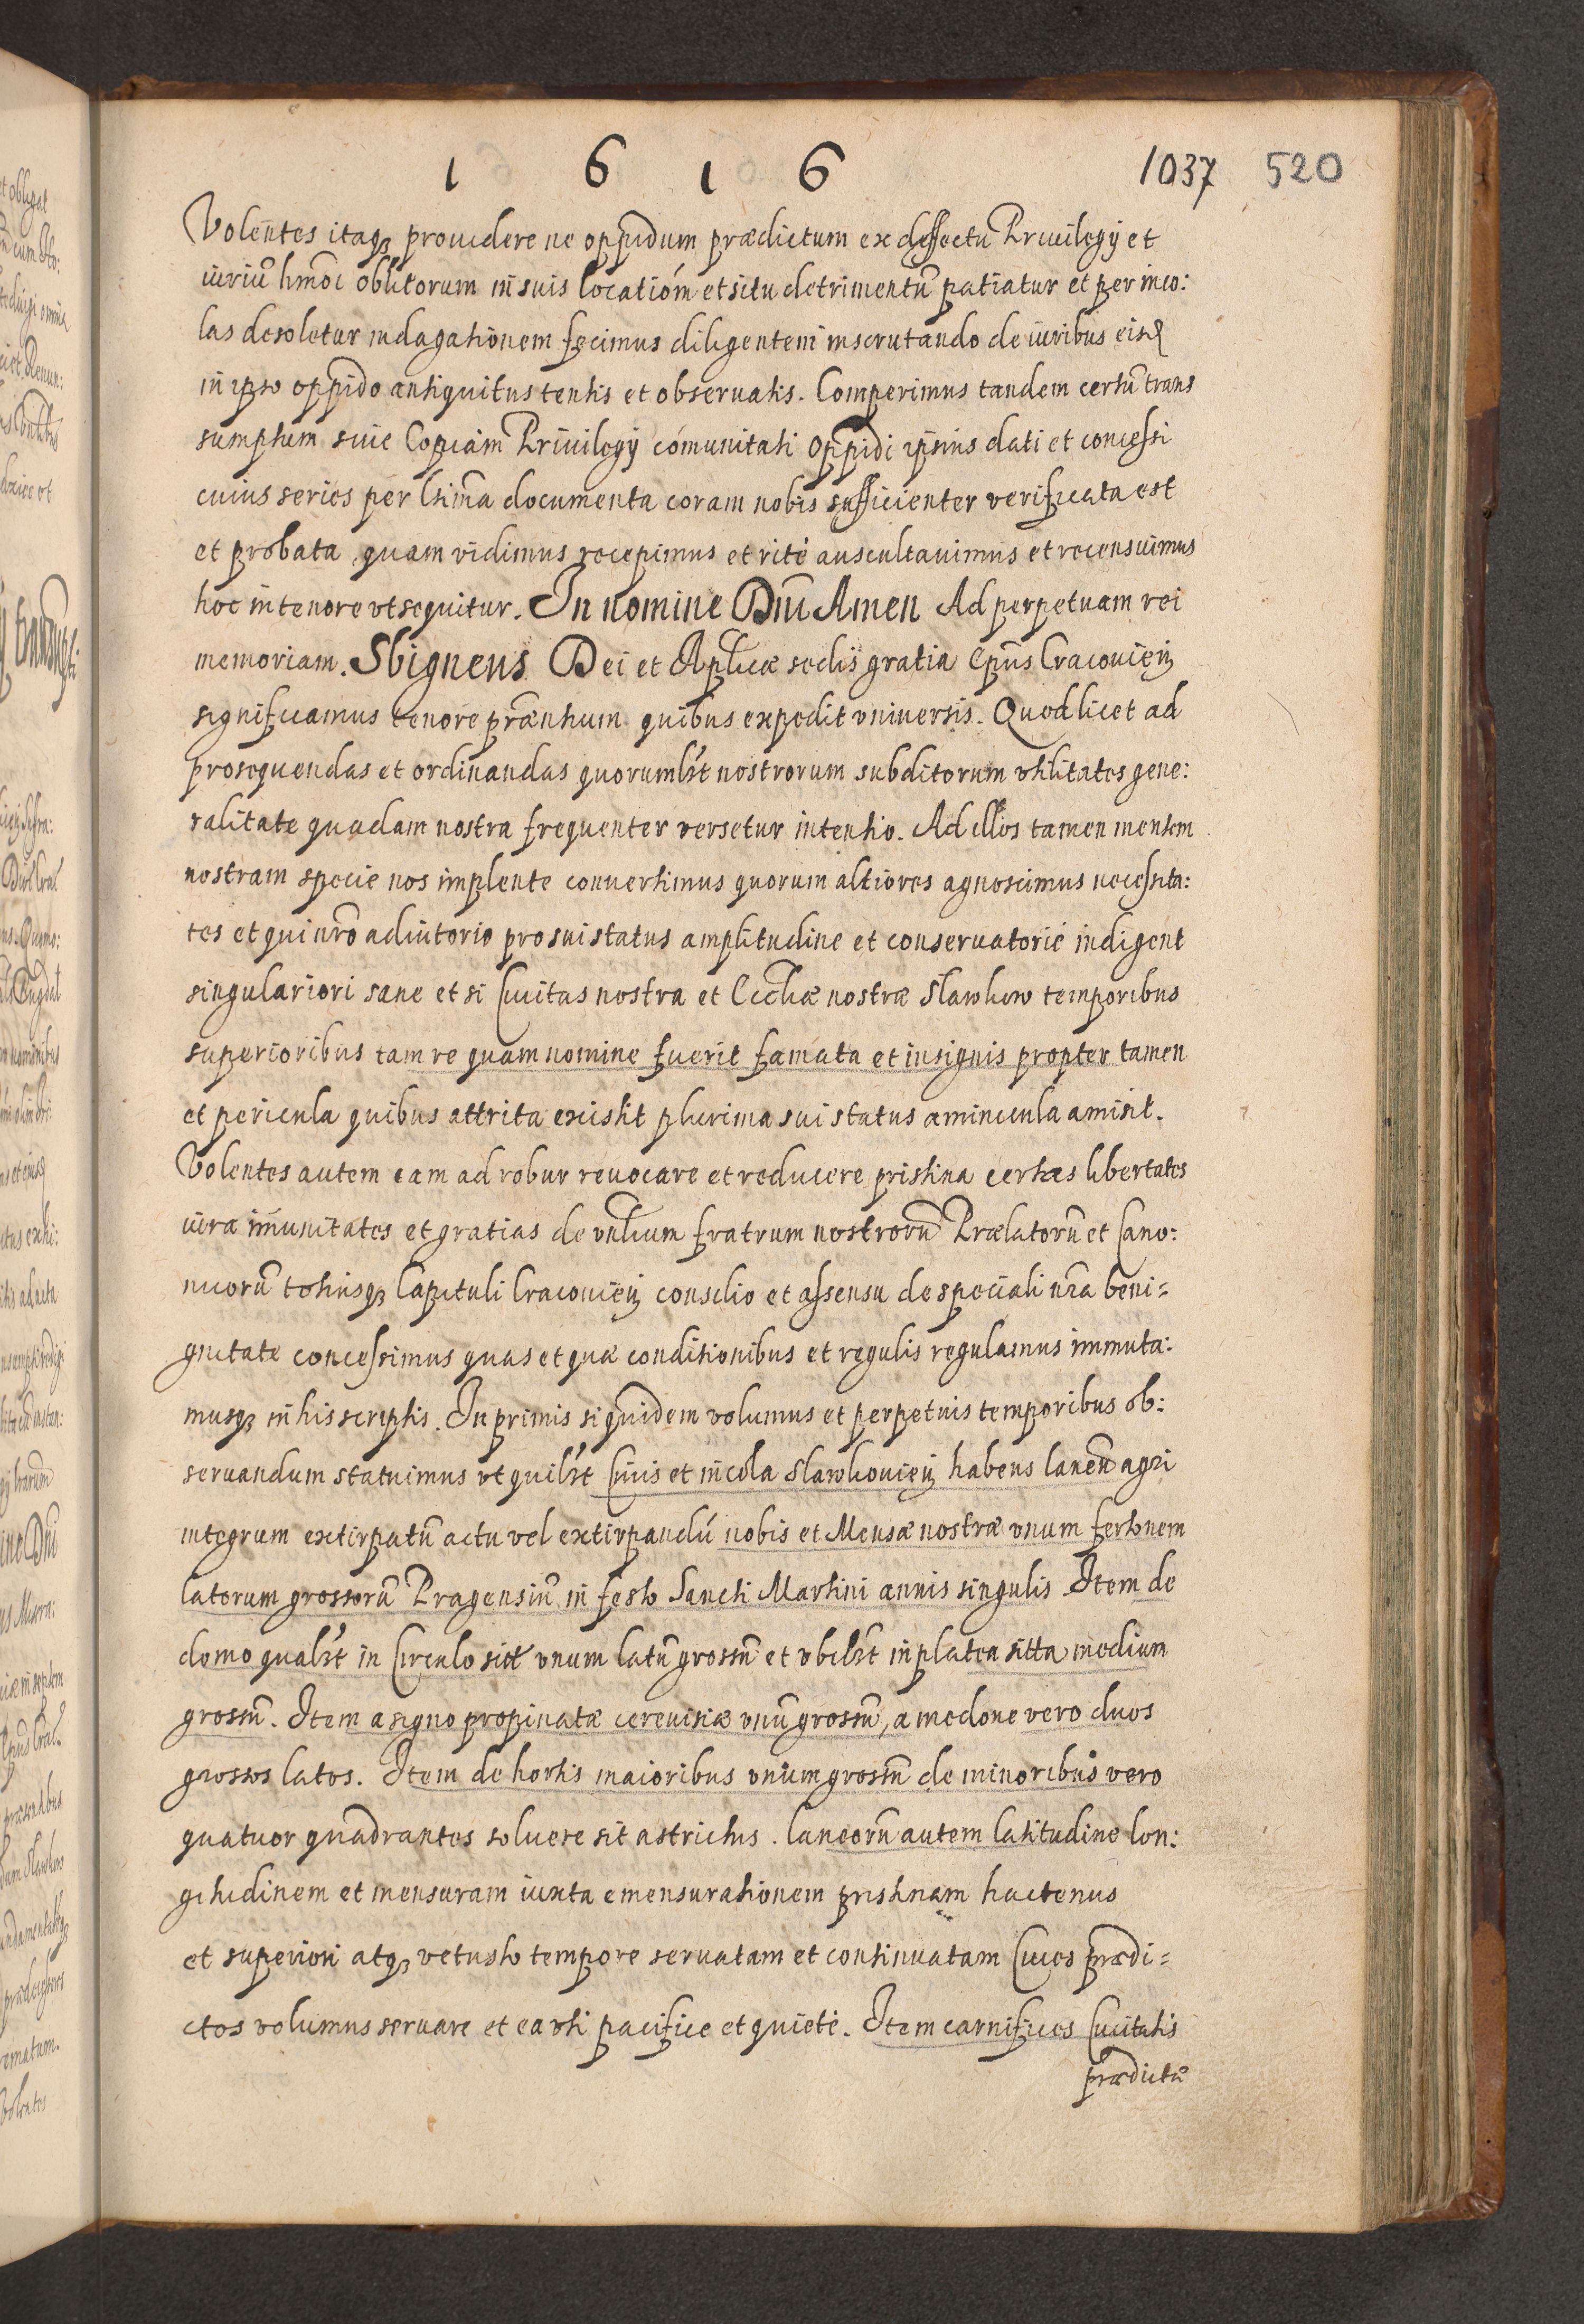 1 6 1 6 1037 520
Volentes itaqʒ prouidere ne oppidum prædictum ex deffectu Priuilegij et
iuriũ hmõi oblitorum in suis locatióm et situ detrimentũ patiatur et per inco:
las desoletur indagationem fecimus diligentem inscrutando de iuribus eisđ
in ipso oppido antiquitus tentis et obseruatis. Comperimus tandem certũ trans
sumptum siue Copiam Priuilegij cómunitati Oppidi ipsius dati et concessi
cuius series per ltima documenta coram nobis sufficienter verificata est
et probata quam vidimus recepimus et ritè auscultauimus et recensuimus
hoc in tenore vt sequitur. In nomine Dnĩ Amen Ad perpetuam rei
memoriam. Sbigneus Dei et Aplicæ sedis gratia Epũs Cracouieñ
significamus tenore præntium quibus expedit vniuersis. Quod licet ad
prosequendas et ordinandas quorumlt nostrorum subditorum vtilitates gene:
ralitate quadam nostra frequenter versetur intentio. Ad illos tamen mentem
nostram specie nos implente conuertimus quorum altiores agnoscimus necessita:
tes et qui nrõ adiutorio pro sui status amplitudine et conseruatorie indigent
singulariori sane et si Ciuitas nostra et Ecctiæ nostræ Slawkow temporibus
superioribus tam re quam nomine fuerit famata et insignis propter tamen
et pericula quibus attrita existit plurima sui status aminicula amisit.
Volentes autem eam ad robur reuocare et reducere pristina certas libertates
iura immunitates et gratias de vnlium fratrum nostrorũ Prælatorũ et Cano:
nicorũ totiusqʒ Capituli Cracouieñ consilio et assensu de speciali nrã beni=
gnitate concessimus quas et quæ conditionibus et regulis regulamus immuta:
musqʒ in his scriptis. In primis siquidem volumus et perpetuis temporibus ob:
seruandum statuimus vt quilt Ciuis et incola Slawkouieñ habens laneũ agri
integrum extirpatũ actu vel extirpandũ nobis et Mensæ nostræ vnum fertonem
latorum grossorũ Pragensiũ in festo Sancti Martini annis singulis Item de
domo qualt in Circulo sitt vnum latũ grossũ et vbilt in platea sitta medium
grossũ. Item a signo propinatæ cereuisiæ vnũ grossũ, a medone vero duos
grossos latos. Item de hortis maioribus vnium grossũ de minoribus vero
quatuor quadrantes soluere sit astrictus. laneorũ autem latitudine lon:
gitudinem et mensuram iuxta emensurationem pristinam hactenus
et superiori atqʒ vetusto tempore seruatam et continuatam Ciues prædi=
ctos volumus seruare et ea vti pacifice et quietè. Item carnifices Ciuitatis
prædictæ